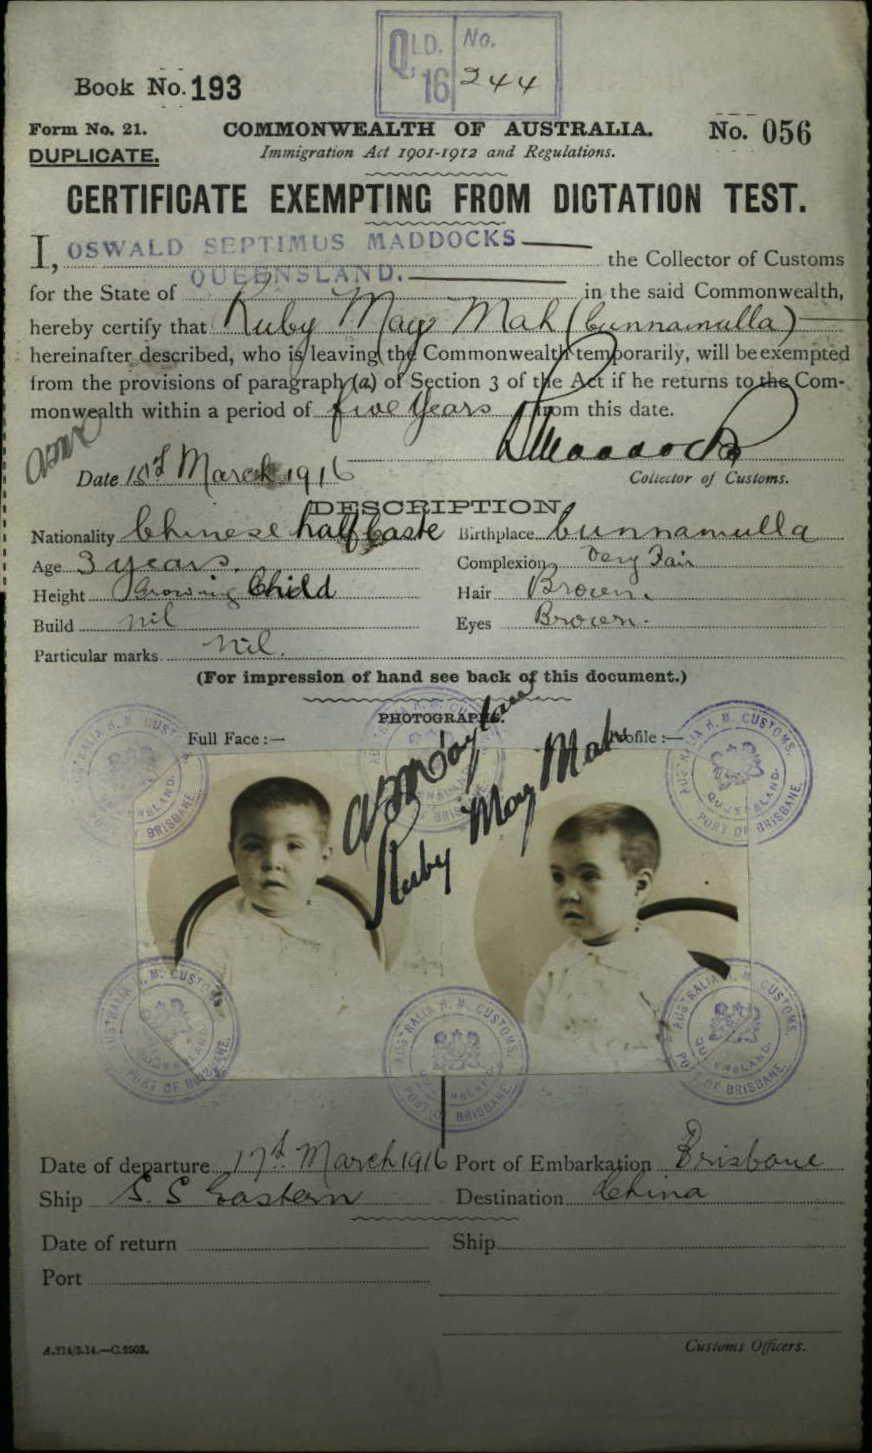 QLD. No.
16 244
Book No. 193
Form No. 21. COMMONWEALTH OF AUSTRALIA. No. 056
DUPLICATE. Immigration Act 1901-1912 and Regulations.
CERTIFICATE EXEMPTING FROM DICTATION TEST.
I, OSWALD SEPTIMUS MADDOCKS the Collector of Customs
for the State of QUEENSLAND. in the said Commonwealth,
hereby certify that Ruby May Mah (Cunnamulla)
hereinafter described, who is leaving the Commonwealth temporarily, will be exempted
from the provisions of paragraph (a) of Section 3 of the Act if he returns to the Com-
monwealth within a period of five years from this date.
OSMaddocks
Date 15t March 1916 Collector of Customs.
DESCRIPTION
Nationality Chinese half Caste Birthplace Cunnamulla
Age 3 years. Complexion Very Fair
Height Growing Child Hair Brown.
Build nil Eyes Brown.
Particular marks nil.
(For impression of hand see back of this document.)
PHOTOGRAPHS.
Full Face :— Profile :—
Ruby May Mah
AUSTRALIA H. M. CUSTOMS. QUEENSLAND. PORT OF BRISBANE.
AUSTRALIA H. M. CUSTOMS. QUEENSLAND. PORT OF BRISBANE.
AUSTRALIA H. M. CUSTOMS. QUEENSLAND. PORT OF BRISBANE.
AUSTRALIA H. M. CUSTOMS. QUEENSLAND. PORT OF BRISBANE.
AUSTRALIA H. M. CUSTOMS. QUEENSLAND. PORT OF BRISBANE.
Date of departure 17t. March 1916 Port of Embarkation Brisbane
Ship S. S Eastern Destination China
Date of return Ship
Port
A.214/3.14.—C.2503. Customs Officers.